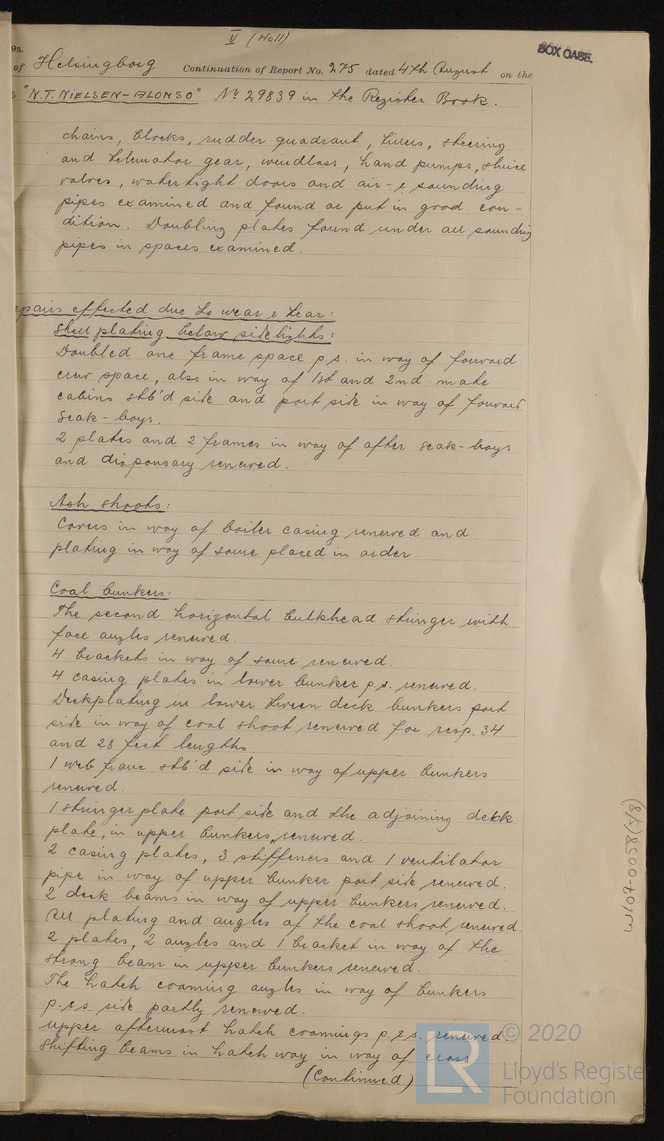 V (Hull)
BOX CASE.
9a.
of Helsingborg Continuation of Report No. 275 dated 4th August on the
s "N.T. NIELSEN-ALONSO" No 29839 in the Register Book.
chains, blocks, rudder quadrant, tillers, steering
and telemotor gear, windlass, hand pumps, sluice
valves, watertight doors and air- & sounding
pipes examined and found or put in good con-
dition. Doubling plates found under all sounding
pipes in spaces examined.
epairs effected due to wear & tear:
Shell plating below sidelights:
Doubled one frame space p.s. in way of forward
crew space, also in way of 1st and 2nd mate
cabins stb'd side and port side in way of forward
seak-bays.
2 plates and 2 frames in way of after seak-bays
and dispensary renewed.
Ash shoots:
Covers in way of boiler casing renewed and
plating in way of same placed in order.
Coal bunkers:
The second horizontal bulkhead stringer with
face angles renewed.
4 brackets in way of same renewed.
4 casing plates in lower bunker p.s. renewed.
Deckplating in lower tween deck bunkers port
side in way of coal shoot renewed for resp. 34
and 28 feet lengths.
1 web frame stb'd side in way of upper bunkers
renewed.
1 stringer plate port side and the adjoining deck
plate, in upper bunkers, renewed.
2 casing plates, 3 stiffeners and 1 ventilator
pipe in way of upper bunker port side renewed.
2 deck beams in way of upper bunkers renewed.
All plating and angles of the coal shoot renewed.
2 plates, 2 angles and 1 bracket in way of the
strong beam in upper bunkers renewed.
The hatch coaming angles in way of bunkers
p. & s. side partly renewed.
Upper aftermost hatch coamings p. & s. renewed.
Shifting beams in hatch way in way of cross
(Continued)
© 2020
LR
Lloyd's Register
Foundation